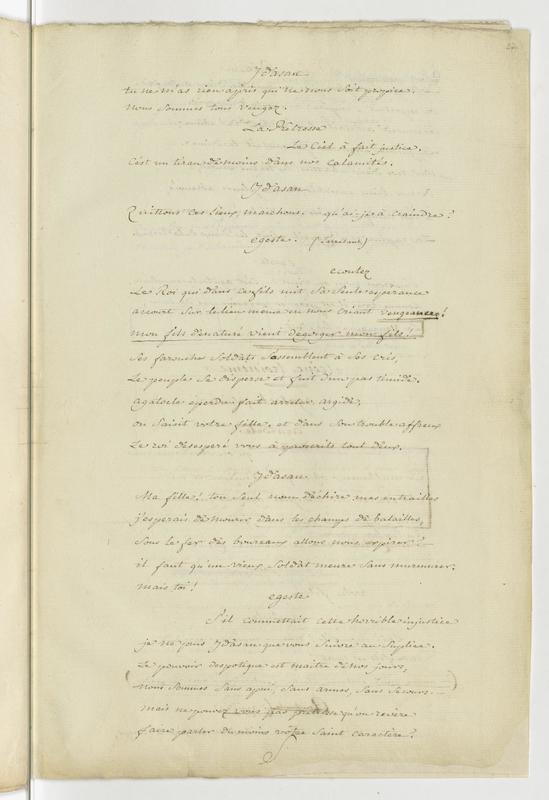 Ydasan
tu ne m'as rien apris qui ne nous soit propice.
nous sommes tous vengez.
La Prêtresse
Le Ciel à fait justice.
C'est un tiran de moins dans nos calamités.
Ydasan
Quittons ces lieux, marchons. qu'ai-je à craindre?
egeste. (l'arretant)
ecoutez
Le Roi qui dans ce fils mit sa seule esperance
accourt sur le lieu meme en nous criant vengeance!
mon fils denaturé vient d'egorger mon fils!
Ses farouches soldats s'assemblent à ses cris,
Le peuple se disperse et fuit d'un pas timide.
agatocle eperdu fait arreter argide,
on saisit votre fille, et dans son trouble affreux
Le roi desesperé vous à proscrits tout deux.
Ydasan
Ma fille! ton seul nom déchire mes entrailles
j'esperais de mourir dans les champs de batailles,
sous le fer des boureaux allons nous expirer?
il faut qu'un vieux soldat meure sans murmurer.
mais toi!
egeste
S'il commettait cette horrible injustice
je ne puis Ydasan que vous suivre au suplice.
Le pouvoir despotique est maitre de nos jours,
nous sommes sans apui, sans armes, sans secours.
mais ne pouvez vous pas qu'on revère
faire parler du moins vôtre saint caractère?